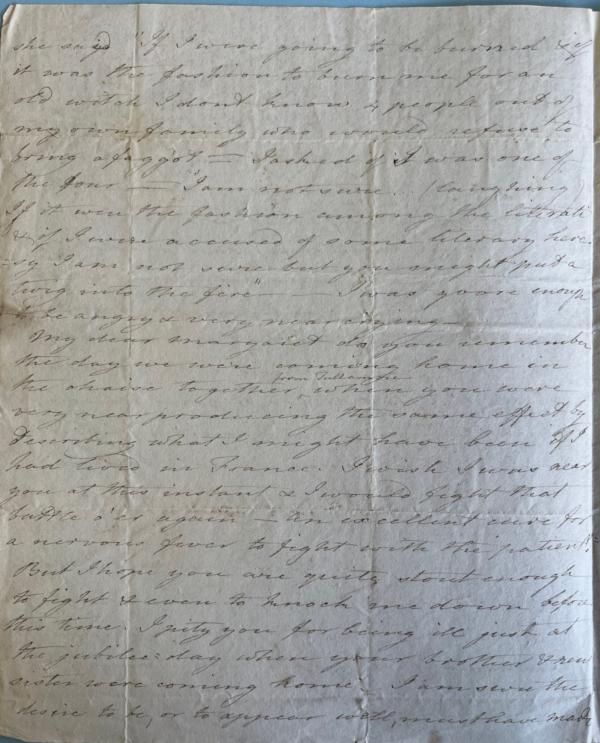 she said "If I were going to be burned & if
it was the fashion to burn me for an
old witch I dont know 4 people out of
my own family who would refuse to
bring a faggot — I asked if I was one of
the four — "I am not sure.. (laughing)
If it were the fashion among the literati
& if I were accused of some literary here
=sy I am not sure but you might put a
twig into the fire" — I was goose enough
to be angry & very near crying —
My dear Margaret do you remember
the day we were coming home in
the chaise together, from when you were
very near producing the same effect by
describing what I might have been if I
had lived in France. I wish I was near
you at this instant & I would fight that
battle o'er again — An excellent cure for
a nervous fever to fight with the patient!
But I hope you are quite stout enough
to fight & even to knock me down before
this time. I pity you for being ill just at
the jubilee=day when your brother & new
sister were coming home — I am sure the
desire to be, or to appear well, must have made